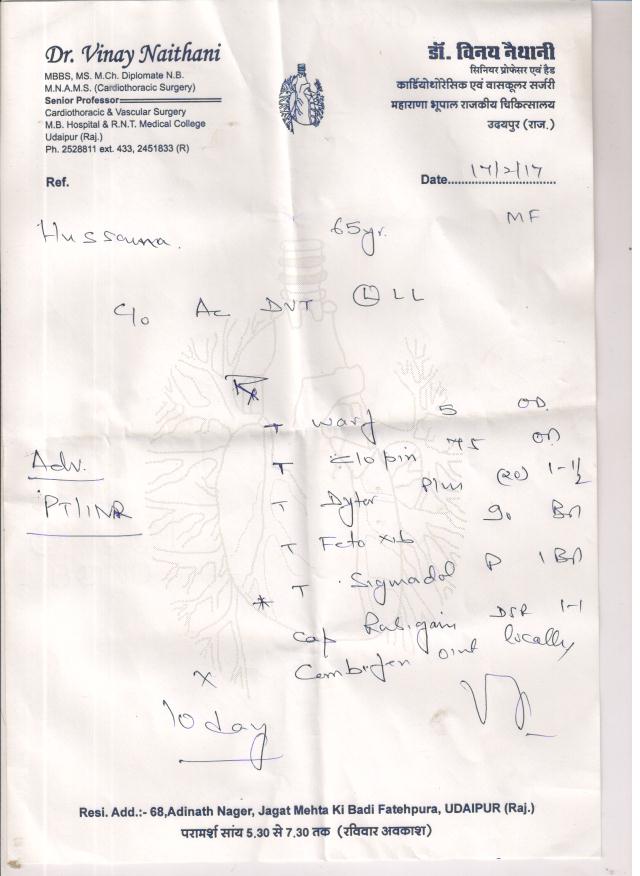 Dr. Vinay Naithani
MBBS, MS. M.Ch. Diplomate N.B.
M.N.A.M.S. (Cardiothoracic Surgery)
Senior Professor
Cardiothoracic & Vascular Surgery
M.B. Hospital & R.N.T. Medical College
Udaipur (Raj.)
Ph. 2528811 ext. 433, 2451833 (R)
डॉ. विनय नैथानी
सिनियर प्रोफेसर एवं हैड
कार्डियोथोरेसिक एवं वासकूलर सर्जरी
महाराणा भूपाल राजकीय चिकित्सालय
उदयपुर (राज.)
Ref.
Date 17/2/17
65yr. MF
C/o Ac DVT (L) LL
Rx
T Warf 5 OD
T Clopin 75 OD
Adv.
T Dytor Plus (20) 1-½
PT/INR
T Fetoxib 90
* T Sigmadol P 1
Cap Rabigain DSR 1-1
Combifen oint locally
x
10 day
Resi. Add.:- 68,Adinath Nager, Jagat Mehta Ki Badi Fatehpura, UDAIPUR (Raj.)
परामर्श सांय 5.30 से 7.30 तक (रविवार अवकाश)